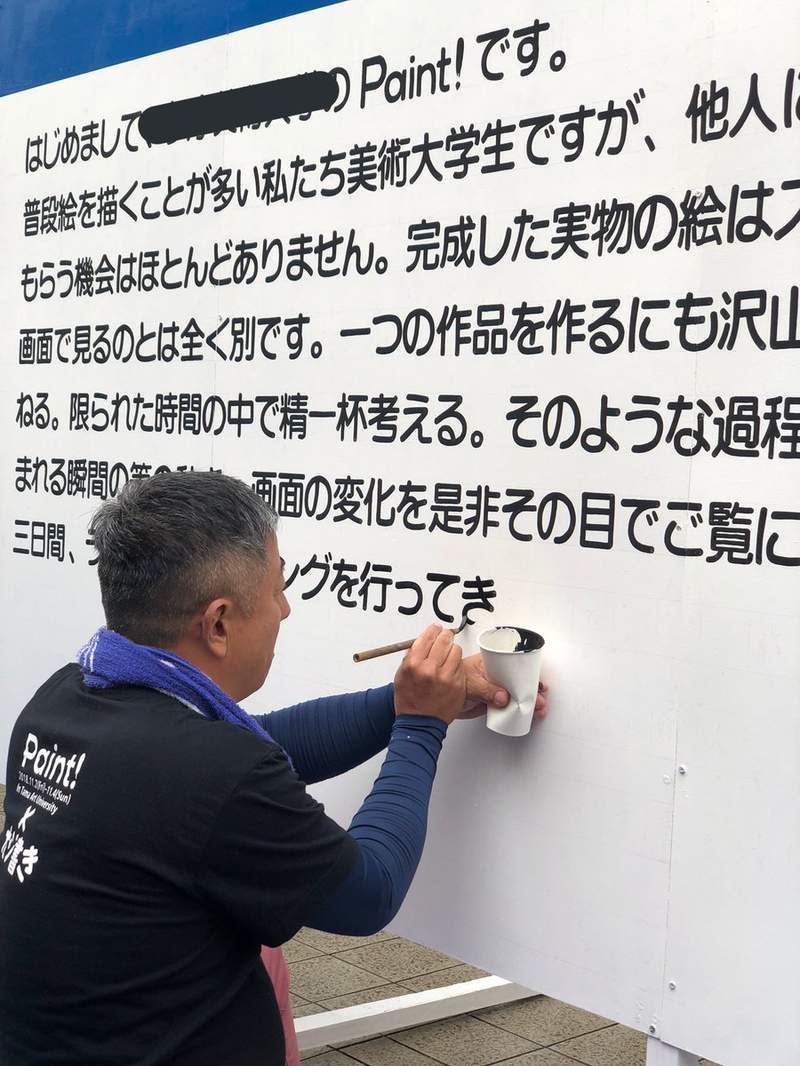 はじめまして、のPaint!です。
普段絵を描くことが多い私たち美術大学生ですが、他人に
もらう機会はほとんどありません。完成した実物の絵はス
画面で見るのとは全く別です。一つの作品を作るにも沢山
ねる。限られた時間の中で精一杯考える。そのような過程
まれる瞬間の筆の 画面の変化を是非その目でご覧に
三日間、 ングを行ってき
Paint!
2018.11.2(Fri)-11.4(Sun)
In Tama Art University
×
書き